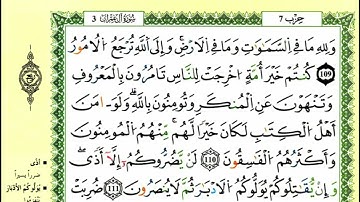 حزب 7
سُورَةُ آلِ عِمْرَان 3
وَلِلهِ مَا فِي السَّمَٰوَٰتِ وَمَا فِي الْأَرْضِ وَإِلَى اللَّهِ تُرْجَعُ الْأُمُورُ
109 كُنتُمْ خَيْرَ أُمَّةٍ أُخْرِجَتْ لِلنَّاسِ تَامُرُونَ بِالْمَعْرُوفِ
وَتَنْهَوْنَ عَنِ الْمُنكَرِ وَتُومِنُونَ بِاللَّهِ وَلَوَ امَنَ
أَهْلُ الْكِتَٰبِ لَكَانَ خَيْرًا لَّهُم مِّنْهُمُ الْمُومِنُونَ
وَأَكْثَرُهُمُ الْفَٰسِقُونَ 110 لَنْ يَضُرُّوكُمُ إِلَّا أَذًى
وَإِنْ يُقَٰتِلُوكُمْ يُوَلُّوكُمُ الْأَدْبَٰرَ ثُمَّ لَا يُنصَرُونَ 111 ضُرِبَتْ
أَذًى
ضررا يسيرا
يُوَلُّوكُمُ الْأَدْبَارَ